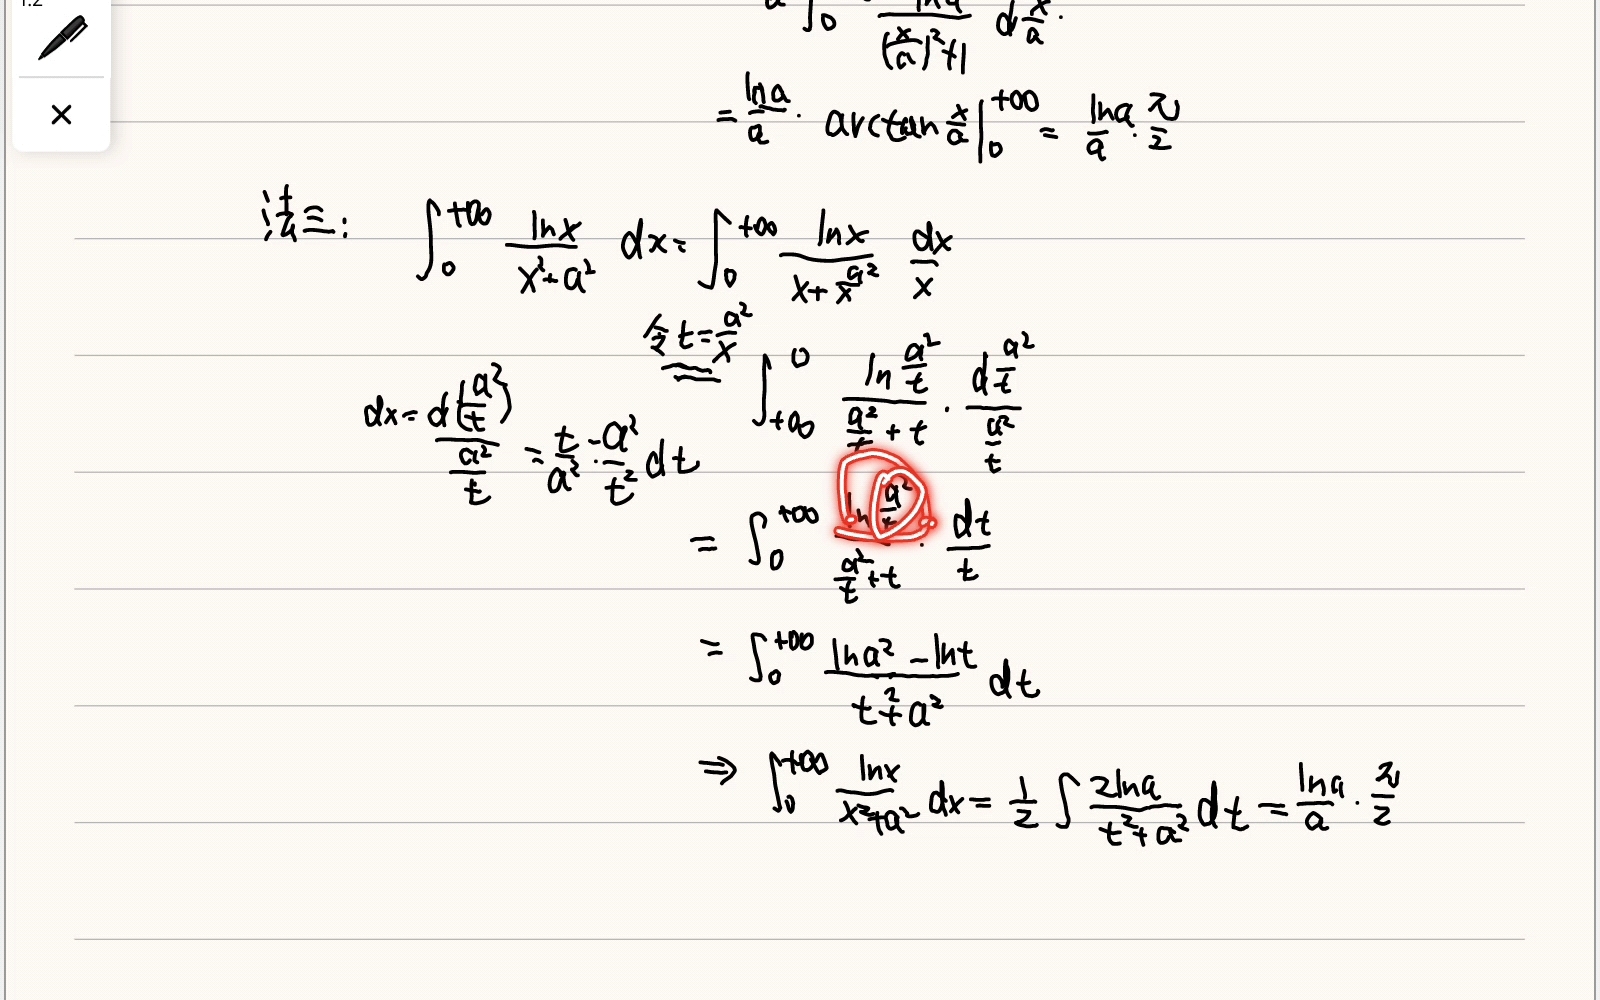 1.2
∫₀ lna/((x/a)²+1) d x/a.
= lna/a · arctan x/a |₀^{+∞} = lna/a · π/2
法三: ∫₀^{+∞} lnx/(x²+a²) dx = ∫₀^{+∞} lnx/(x+a²/x) dx/x
令 t = a²/x ∫_{+∞}^{0} ln(a²/t)/(a²/t + t) · d(a²/t)/(a²/t)
dx = d(a²/t)/(a²/t) = t/a² · -a²/t² dt
= ∫₀^{+∞} ln(a²/t)/(a²/t+t) · dt/t
= ∫₀^{+∞} (lna² - lnt)/(t²+a²) dt
⇒ ∫₀^{+∞} lnx/(x²+a²) dx = 1/2 ∫ 2lna/(t²+a²) dt = lna/a · π/2